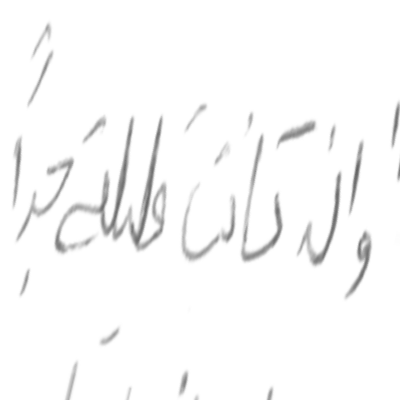 وإن كانت قليلة جداً